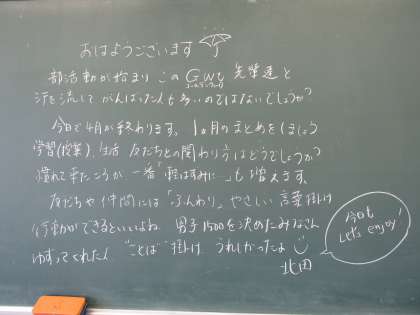 おはようございます
部活動が始まり この GW 先輩達と
ゴールデンウィーク
汗を流して がんばった人も多いのではないでしょうか?
今日で4月が終わります。1ヵ月のまとめをしましょう
学習(授業)、生活 友だちとの関わり方はどうでしょうか?
慣れて来たころが、一番「軽はずみに…」も増えます。
友だちや仲間には「ふんわり」やさしい言葉掛け
行動ができるといいよね 男子1500を決めたみなさん
ゆずってくれた人 "ことば"掛け うれしかったよ
北田
今日も
Let's enjoy!